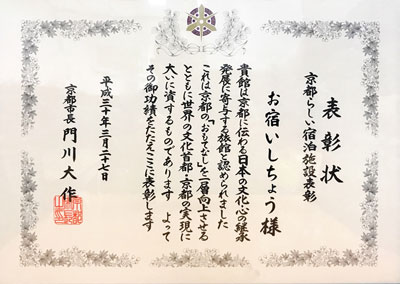 表彰状
京都らしい宿泊施設表彰
お宿いしちょう 様
貴館は京都に伝わる日本の文化心の継承
発展に寄与する旅館と認められました
これは京都の「おもてなし」を一層向上させる
とともに世界の文化首都・京都の実現に
大いに資するものであります よって
その御功績をたたえここに表彰します
平成三十年三月二十七日
京都市長 門川大作